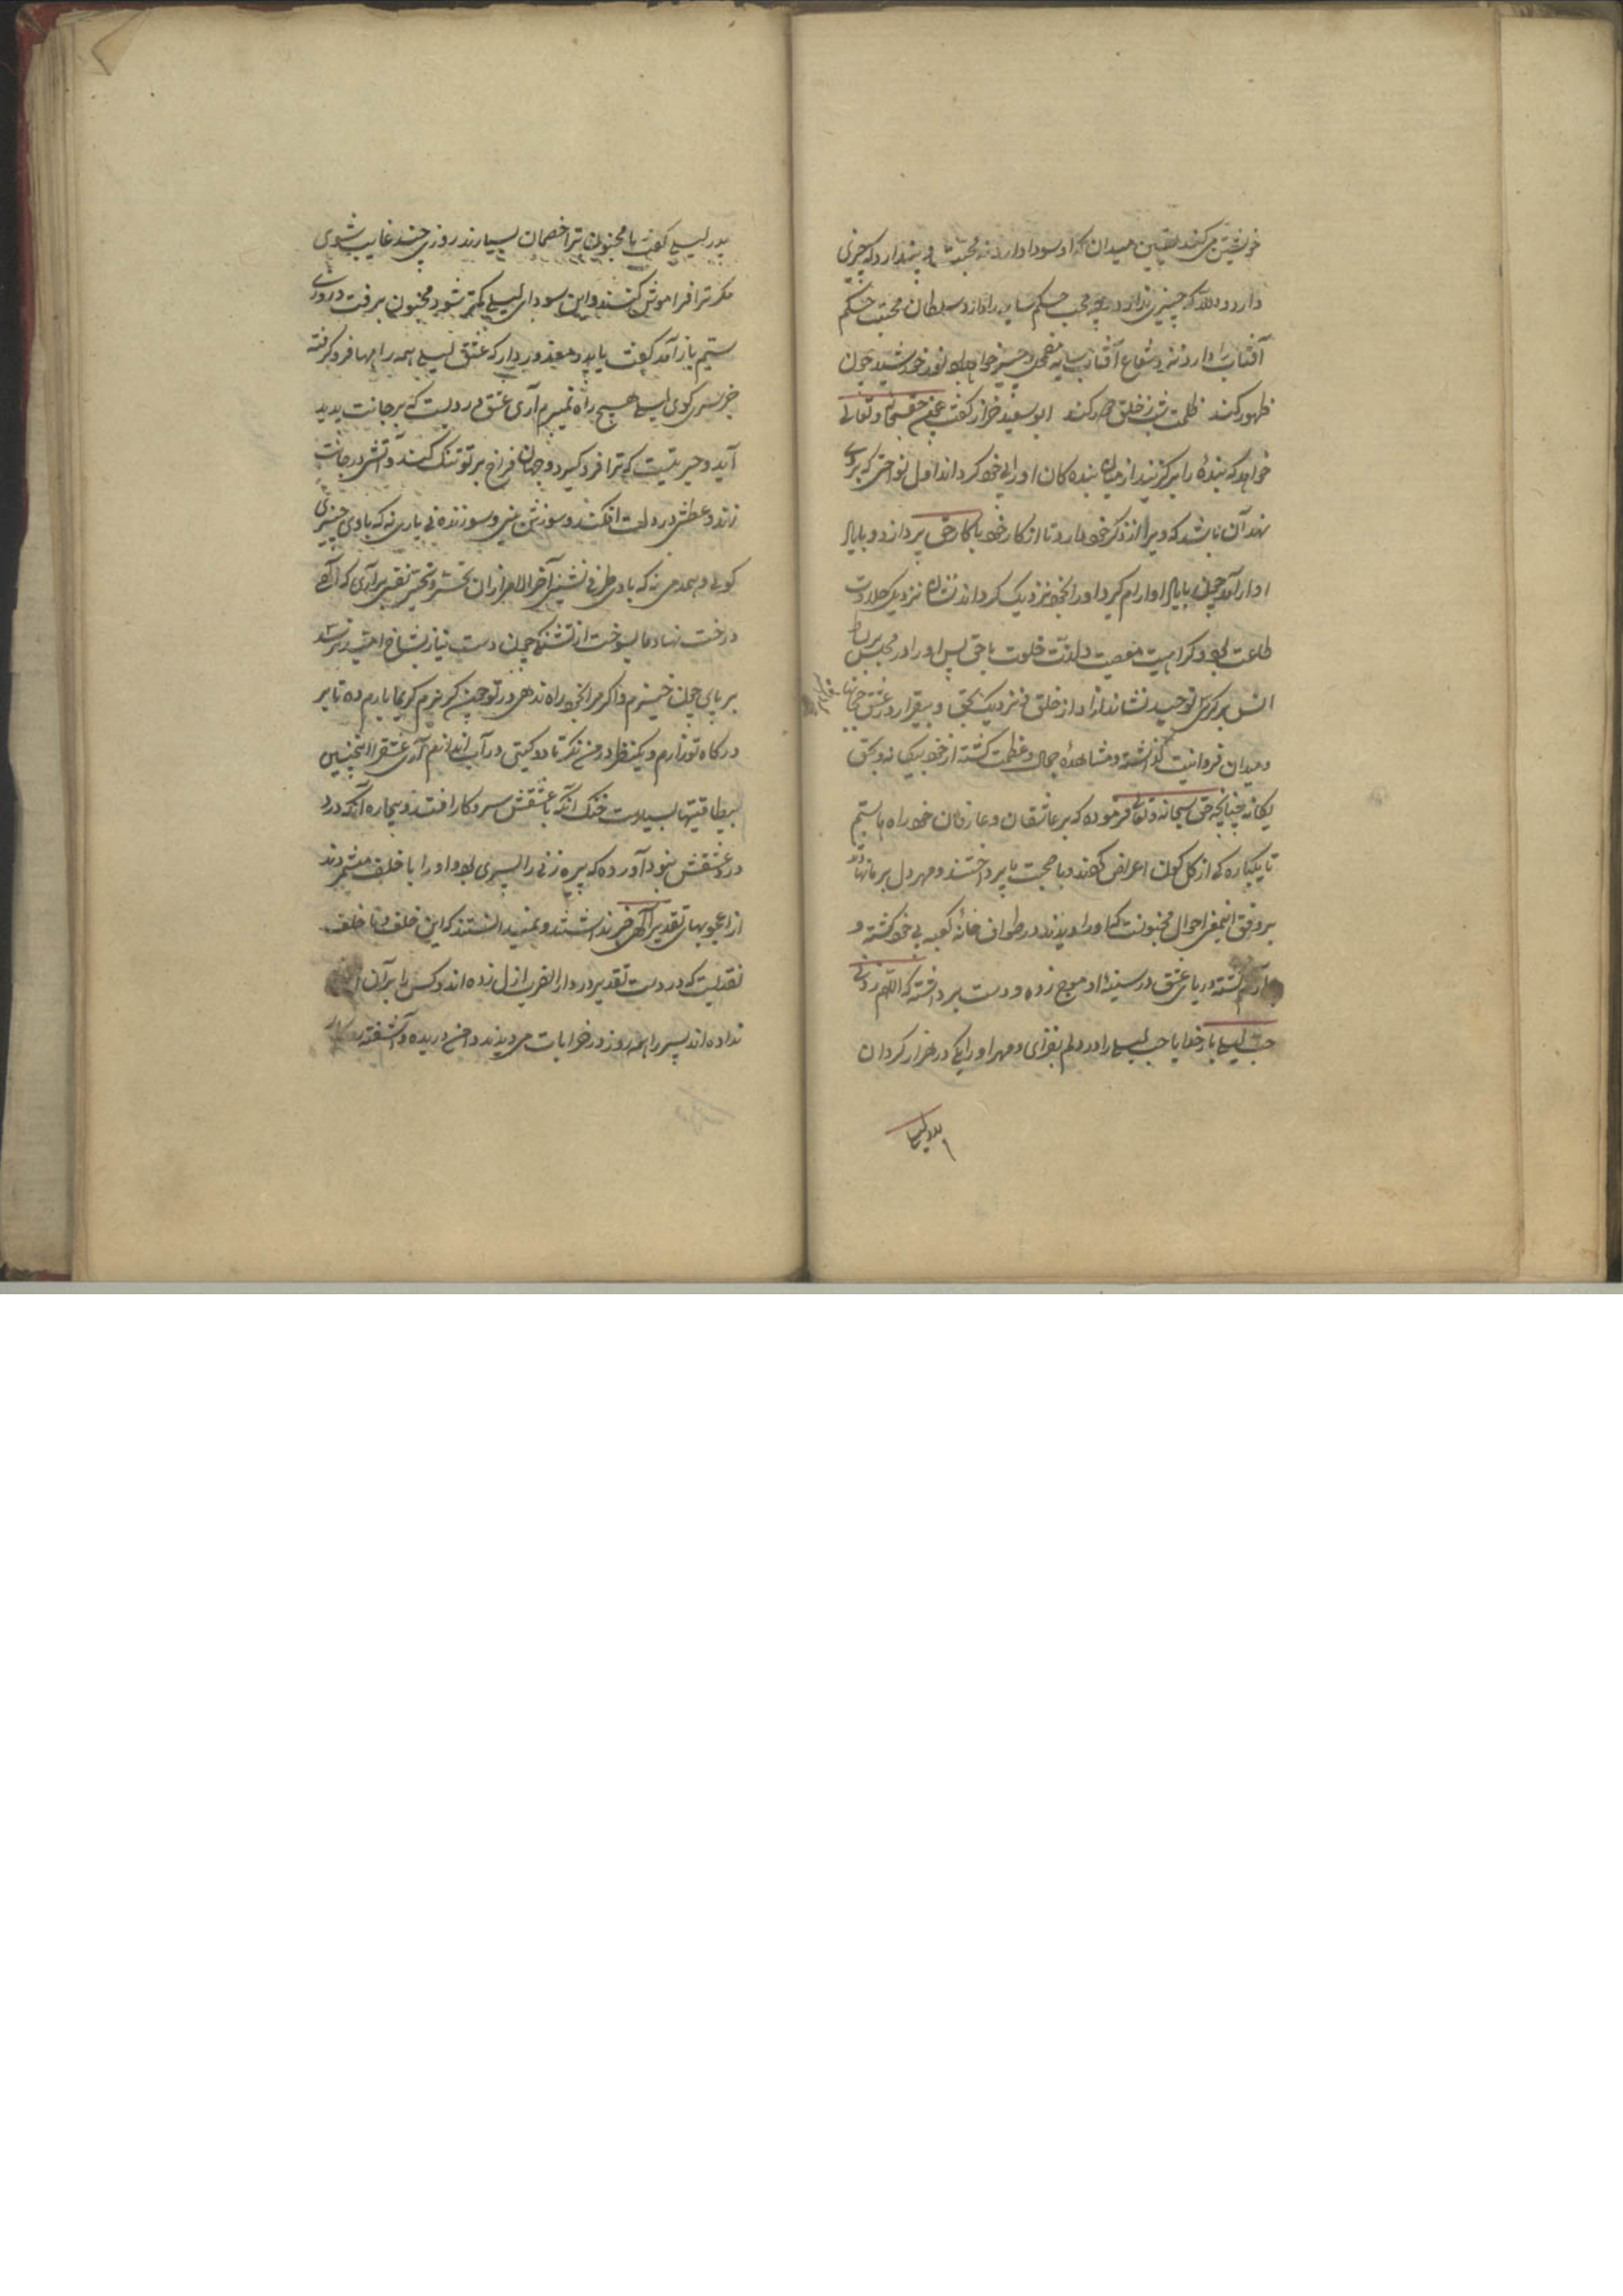 خویشتن می کند یقین میدان که او سودا دارد نه محبت می پندارد که چیزی
دارد و واللّه که چیزی ندارد در محبت حکم سایه دارد و سلطان محبت حکم
آفتاب را دارد نزد شعاع آفتاب سایه مضمحل و خورشید چون
ظهور کند ظلمت شب خلق چه کند ابو سعید خراز گفت چون حق سبحانه و تعالی
خواهد که بندۀ را برگزیند از میان بنده کان او را بخود کرداند اول نواختی که بروی
نهد آن باشد که ویرا از ذکر خود دارد تا از کار خود با کار حق پردازد و با یاد
او آرام چون با یاد او آرام گیرد او را بخود نزدیک کرداند نشان نزدیکی حلاوت
طاعت بود و کراهیت معصیت و لذت خلوت با حق پس او را در مجلس بر بساط
انس بر کرسی توحید نشاند از خلق و نزدیک بحق و بیقرار در عشق
و میدان فردانیت گذاشته و مشاهدۀ جمال و عظمت گشته از خود بیکانه و بحق
یکانه چنانچه حق سبحانه و تعالی فرموده که بر عاشقان و عارفان خود راه باستیم
تا یکباره کی از کل کون اعراض کردند و با محبت ما پرداختند و مهر دل بر ما نهادند
بر وفق اینمعنی احوال مجنونست که او را دیدند در طواف خانۀ کعبه بی خود گشته و
گشته دریای عشق در سینۀ او موج زده و دست برداشته که اللّهم زدنی
حب لیلی بار خدایا حب لیلی را در دلم بفزای و مهر او را یکی در هزار کردان
پدر لیلی
پدر لیلی گفت یا مجنون ترا خصمان بسیارند روزی چند غایب شوی
مکر ترا فراموش کنند و این سودای لیلی کمتر شود مجنون برفت و روز
سیم باز آمد گفت یا پدر معذور دار که عشق لیلی همه راهها فرو گرفته
جز بسر کوی لیلی هیچ راه نمیبرم آری عشق دردیست که بر جانت پدید
آید و حیرتیست که ترا فرو کیرد و جهان فراخ بر تو تنک کند و آتش در جانت
زند و عطش در دلت افکند و سوزش و سوزنده نی یاری نه که با وی چیزی
کوئی و همدمی نه که با وی طرفی نشینی آخر الامر از ان تحسر و تحیر نفسی برآری که آلهی
درخت نهاد ما بسوخت از تشنگی چون دست نیاز بشاخ امید نرسد
بر پای چون خیزم و اکر مرا بخود راه ندهی در تو چون گریزم کریما بارم ده تا بر
درکاه تو زارم و یکنظر در من نکر تا دو کیتی در آب اندازم آری عشق را اینچنین
بیطاقتیها بسیارست خنک آنکه با عشقش سر و کار افتد و بیچاره آنکه درد
در عشقش نبود آورده که پیره زنی را پسری بود و او را با خلف میشمردند
از اعجوبهای تقدیر آلهی خبر نداشتند و نمیدانستند که این خلف و نا خلف
نقدیست که در دست تقدیر در دار الضرب ازل زده اند و کس را بر آن
نداده اند پسر را همه روز در خرابات میدیدند دامن دریده و آشفته